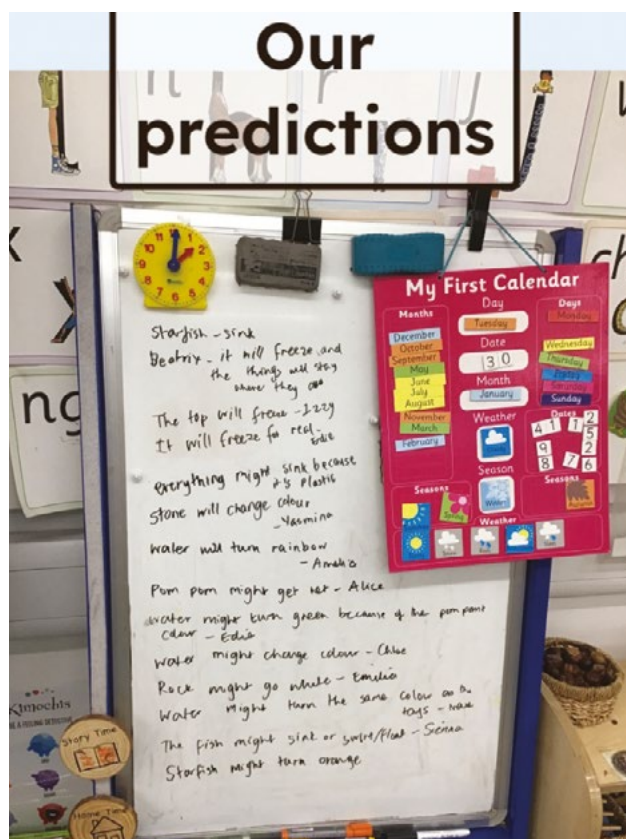 Our
predictions
n
r
j
x
ng
ch
12
1
2
3
4
5
6
7
8
9
10
11
Starfish - sink
Beatrix - it will freeze and
the things will stay
where they
The top will freeze - Izzy
It will freeze for real -
Edie
everything might sink because
it's plastic
Stone will change colour
- Yasmina
water will turn rainbow
- Amelia
Pom pom might get wet - Alice
water might turn green because of the pom pom
colour - Edie
water might change colour - Chloe
Rock might go white - Emilia
Water might turn the same colour as the
toys -
The fish might sink or swim/float - Sienna
Starfish might turn orange
My First Calendar
Months
December
October
September
May
June
July
August
November
March
February
Day
Tuesday
Date
30
Month
January
Weather
Cloudy
Season
Winter
Days
Monday
Wednesday
Thursday
Friday
Saturday
Sunday
Dates
4 1 1 2
5
9 2
8 7 6
Seasons
Spring
Seasons
Autumn
Weather
Kimochis
BE A FEELING DETECTIVE
Story Time
Home Time